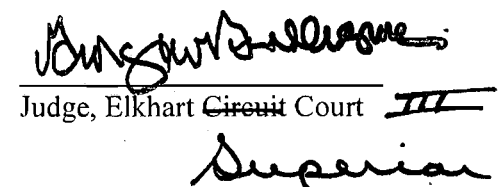 Judge, Elkhart Circuit Court III
Superior